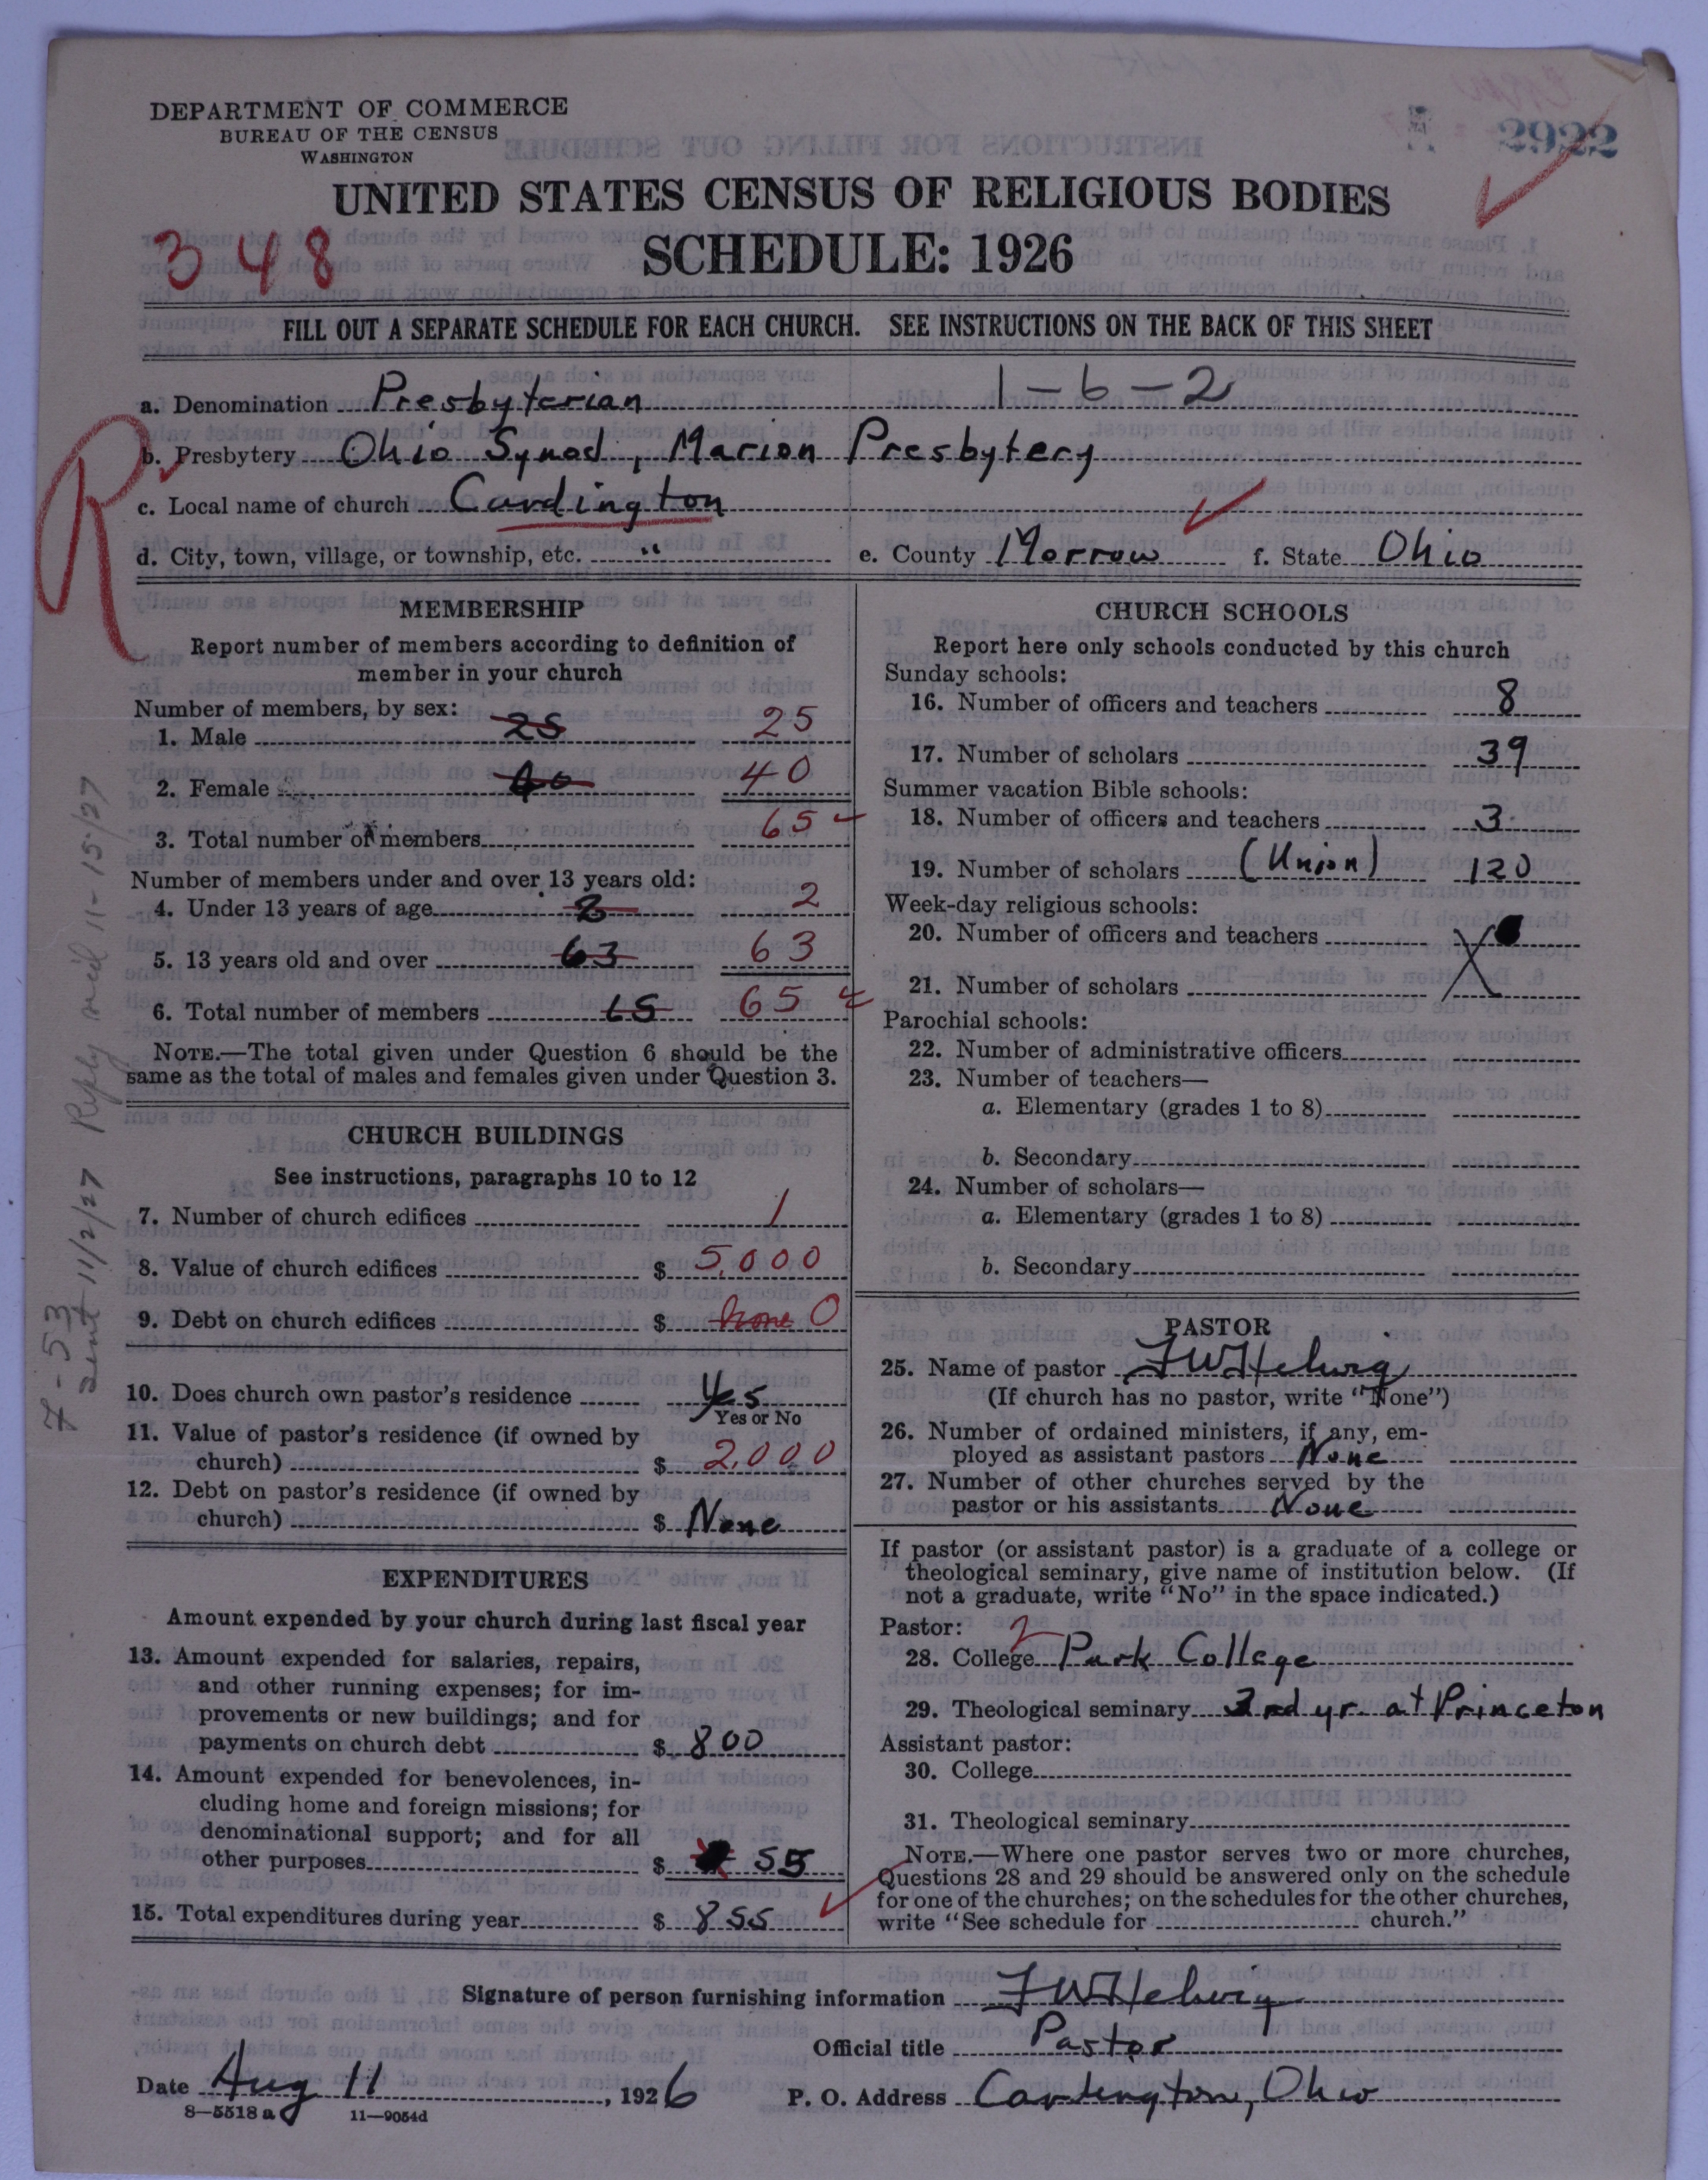 DEPARTMENT OF COMMERCE
BUREAU OF THE CENSUS
WASHINGTON
2922
UNITED STATES CENSUS OF RELIGIOUS BODIES
SCHEDULE: 1926
348
FILL OUT A SEPARATE SCHEDULE FOR EACH CHURCH. SEE INSTRUCTIONS ON THE BACK OF THIS SHEET
R
a. Denomination Presbyterian 1-6-2
b. Presbytery Ohio Synod, Marion Presbytery
c. Local name of church Cardington
d. City, town, village, or township, etc. " e. County Morrow f. State Ohio
MEMBERSHIP
Report number of members according to definition of
member in your church
Number of members, by sex:
1. Male 25 25
2. Female 40 40
3. Total number of members 65
Number of members under and over 13 years old:
4. Under 13 years of age 2 2
5. 13 years old and over 63 63
6. Total number of members 65 65
NOTE.—The total given under Question 6 should be the
same as the total of males and females given under Question 3.
CHURCH BUILDINGS
See instructions, paragraphs 10 to 12
7. Number of church edifices 1
8. Value of church edifices $ 5,000
9. Debt on church edifices $ none 0
10. Does church own pastor's residence Yes
Yes or No
11. Value of pastor's residence (if owned by
church) $ 2,000
12. Debt on pastor's residence (if owned by
church) $ None
EXPENDITURES
Amount expended by your church during last fiscal year
13. Amount expended for salaries, repairs,
and other running expenses; for im-
provements or new buildings; and for
payments on church debt $ 800
14. Amount expended for benevolences, in-
cluding home and foreign missions; for
denominational support; and for all
other purposes $ 55
15. Total expenditures during year $ 855
CHURCH SCHOOLS
Report here only schools conducted by this church
Sunday schools:
16. Number of officers and teachers 8
17. Number of scholars 39
Summer vacation Bible schools:
18. Number of officers and teachers 3
19. Number of scholars (Union) 120
Week-day religious schools:
20. Number of officers and teachers
21. Number of scholars
Parochial schools:
22. Number of administrative officers
23. Number of teachers—
a. Elementary (grades 1 to 8)
b. Secondary
24. Number of scholars—
a. Elementary (grades 1 to 8)
b. Secondary
PASTOR
25. Name of pastor F W Helwig
(If church has no pastor, write "None")
26. Number of ordained ministers, if any, em-
ployed as assistant pastors None
27. Number of other churches served by the
pastor or his assistants None
If pastor (or assistant pastor) is a graduate of a college or
theological seminary, give name of institution below. (If
not a graduate, write "No" in the space indicated.)
Pastor: 2
28. College Park College
29. Theological seminary 3rd yr. at Princeton
Assistant pastor:
30. College
31. Theological seminary
NOTE.—Where one pastor serves two or more churches,
Questions 28 and 29 should be answered only on the schedule
for one of the churches; on the schedules for the other churches,
write "See schedule for church."
Signature of person furnishing information F W Helwig
Official title Pastor
Date Aug 11, 1926 P. O. Address Cardington, Ohio
8—5518 a 11—9054d
7-53
sent 11/2/27 Reply 11-15-27